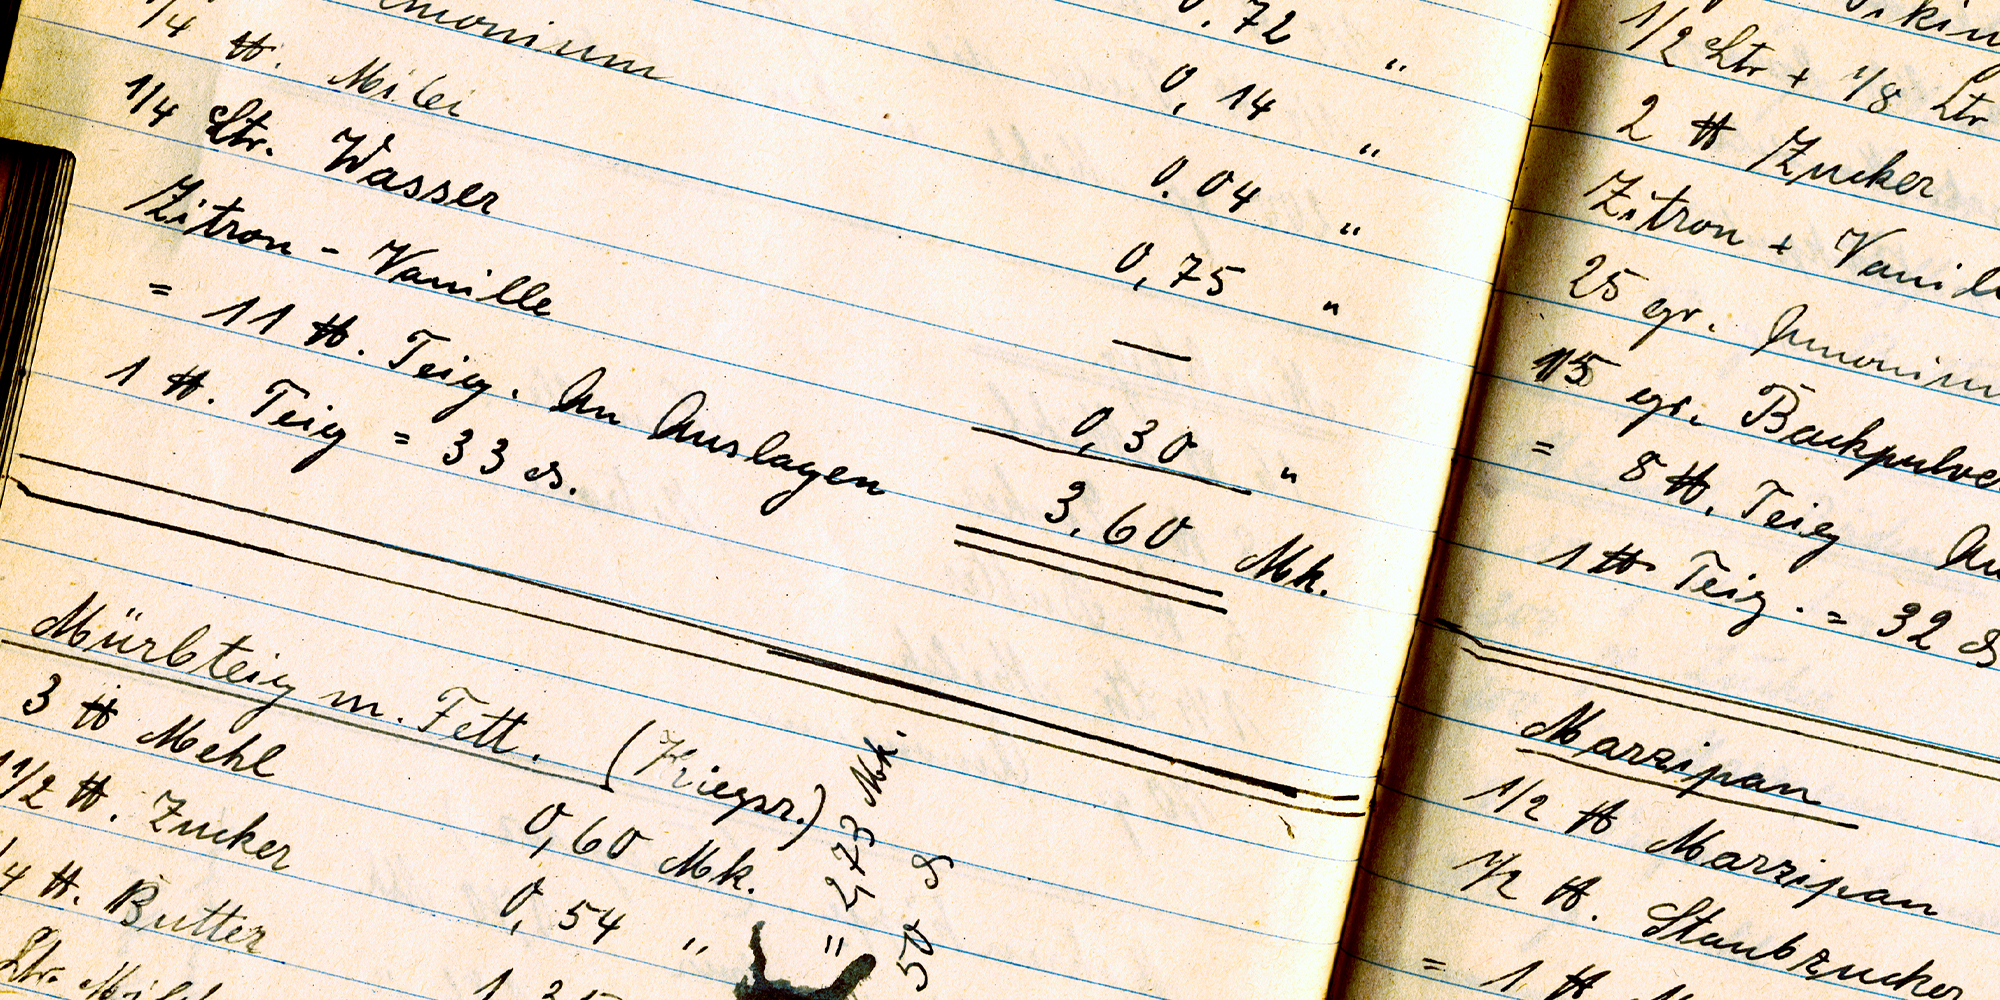 0.72 "
1/4 ℔. 0,14 "
1/4 Ltr. Wasser 0.04 "
Zitron - Vanille 0,75 "
= 11 ℔. Teig. An Auslagen 0,30 "
1 ℔. Teig = 33 ₰. 3,60 Mk.
Mürbteig m. Fett. (Kriegsr.)
3 ℔ Mehl 0,60 Mk.
1 1/2 ℔. Zucker 0,54 "
/4 ℔. Butter
Ltr.
2,73 Mk.
" 50 ₰
1/2 Ltr + 1/8 Ltr
2 ℔ Zucker
Zitron + Vanill
25 gr. Amonium
15 gr. Backpulve
= 8 ℔. Teig An
1 ℔ Teig. = 32 ₰
Marzipan
1/2 ℔ Marzipan
1/2 ℔. Staubzucker
= 1 ℔